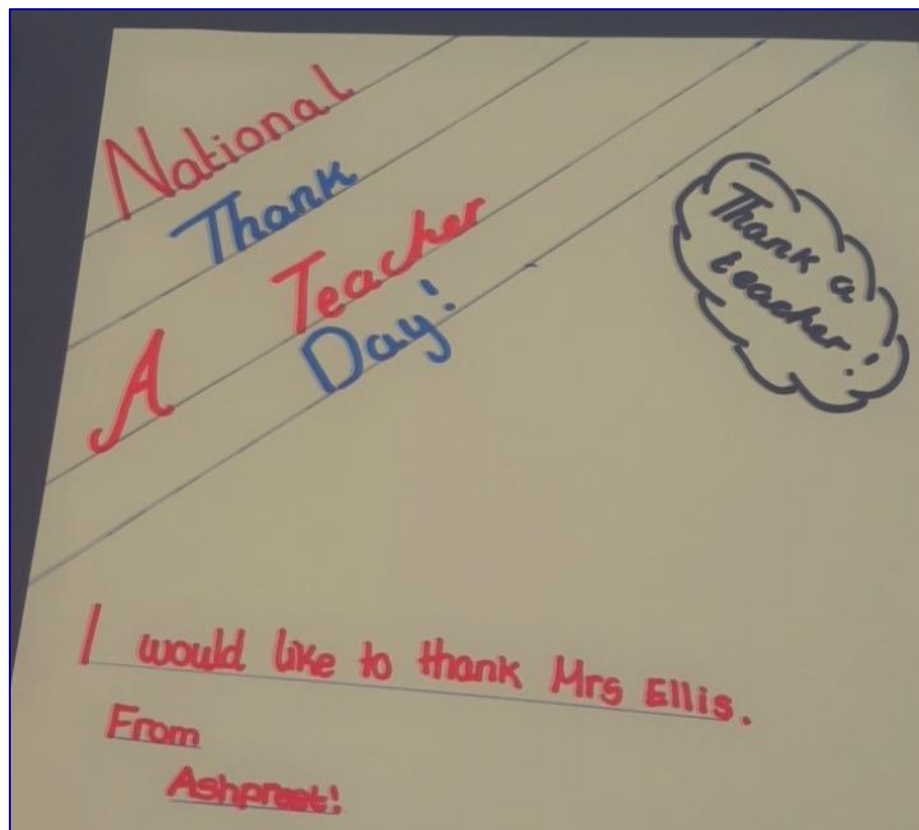 National
Thank
A Teacher
Day!
Thank a
teacher!
I would like to thank Mrs Ellis.
From
Ashpreet!